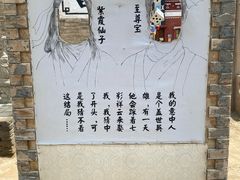 至尊宝
紫霞仙子
我的意中人
是个盖世英
雄，有一天
他会踩着七
彩祥云来娶
我，我猜中
了开头，可
是我猜不着
这结局……